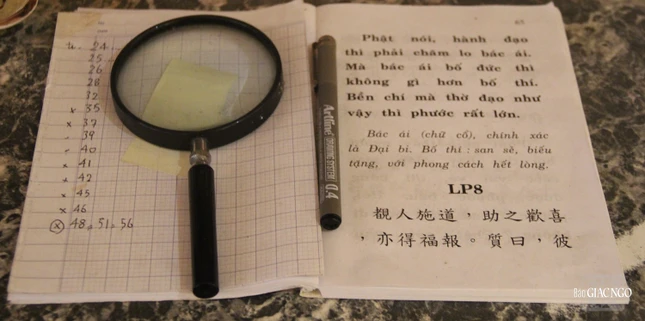 24
25
26
28
32
x 35
x 37
- 39
- 40
x 41
x 42
x 45
x 46
ⓧ 48 = 51 = 56
Artline DRAWING SYSTEM 0.4
65
Phật nói, hành đạo
thì phải chăm lo bác ái.
Mà bác ái bố đức thì
không gì hơn bố thí.
Bền chí mà thờ đạo như
vậy thì phước rất lớn.
Bác ái (chữ cổ), chính xác
là Đại bi. Bố thí : san sẻ, biếu
tặng, với phong cách hết lòng.
LP8
覩人施道，助之歡喜
，亦得福報。質曰，彼
Báo GIÁC NGỘ